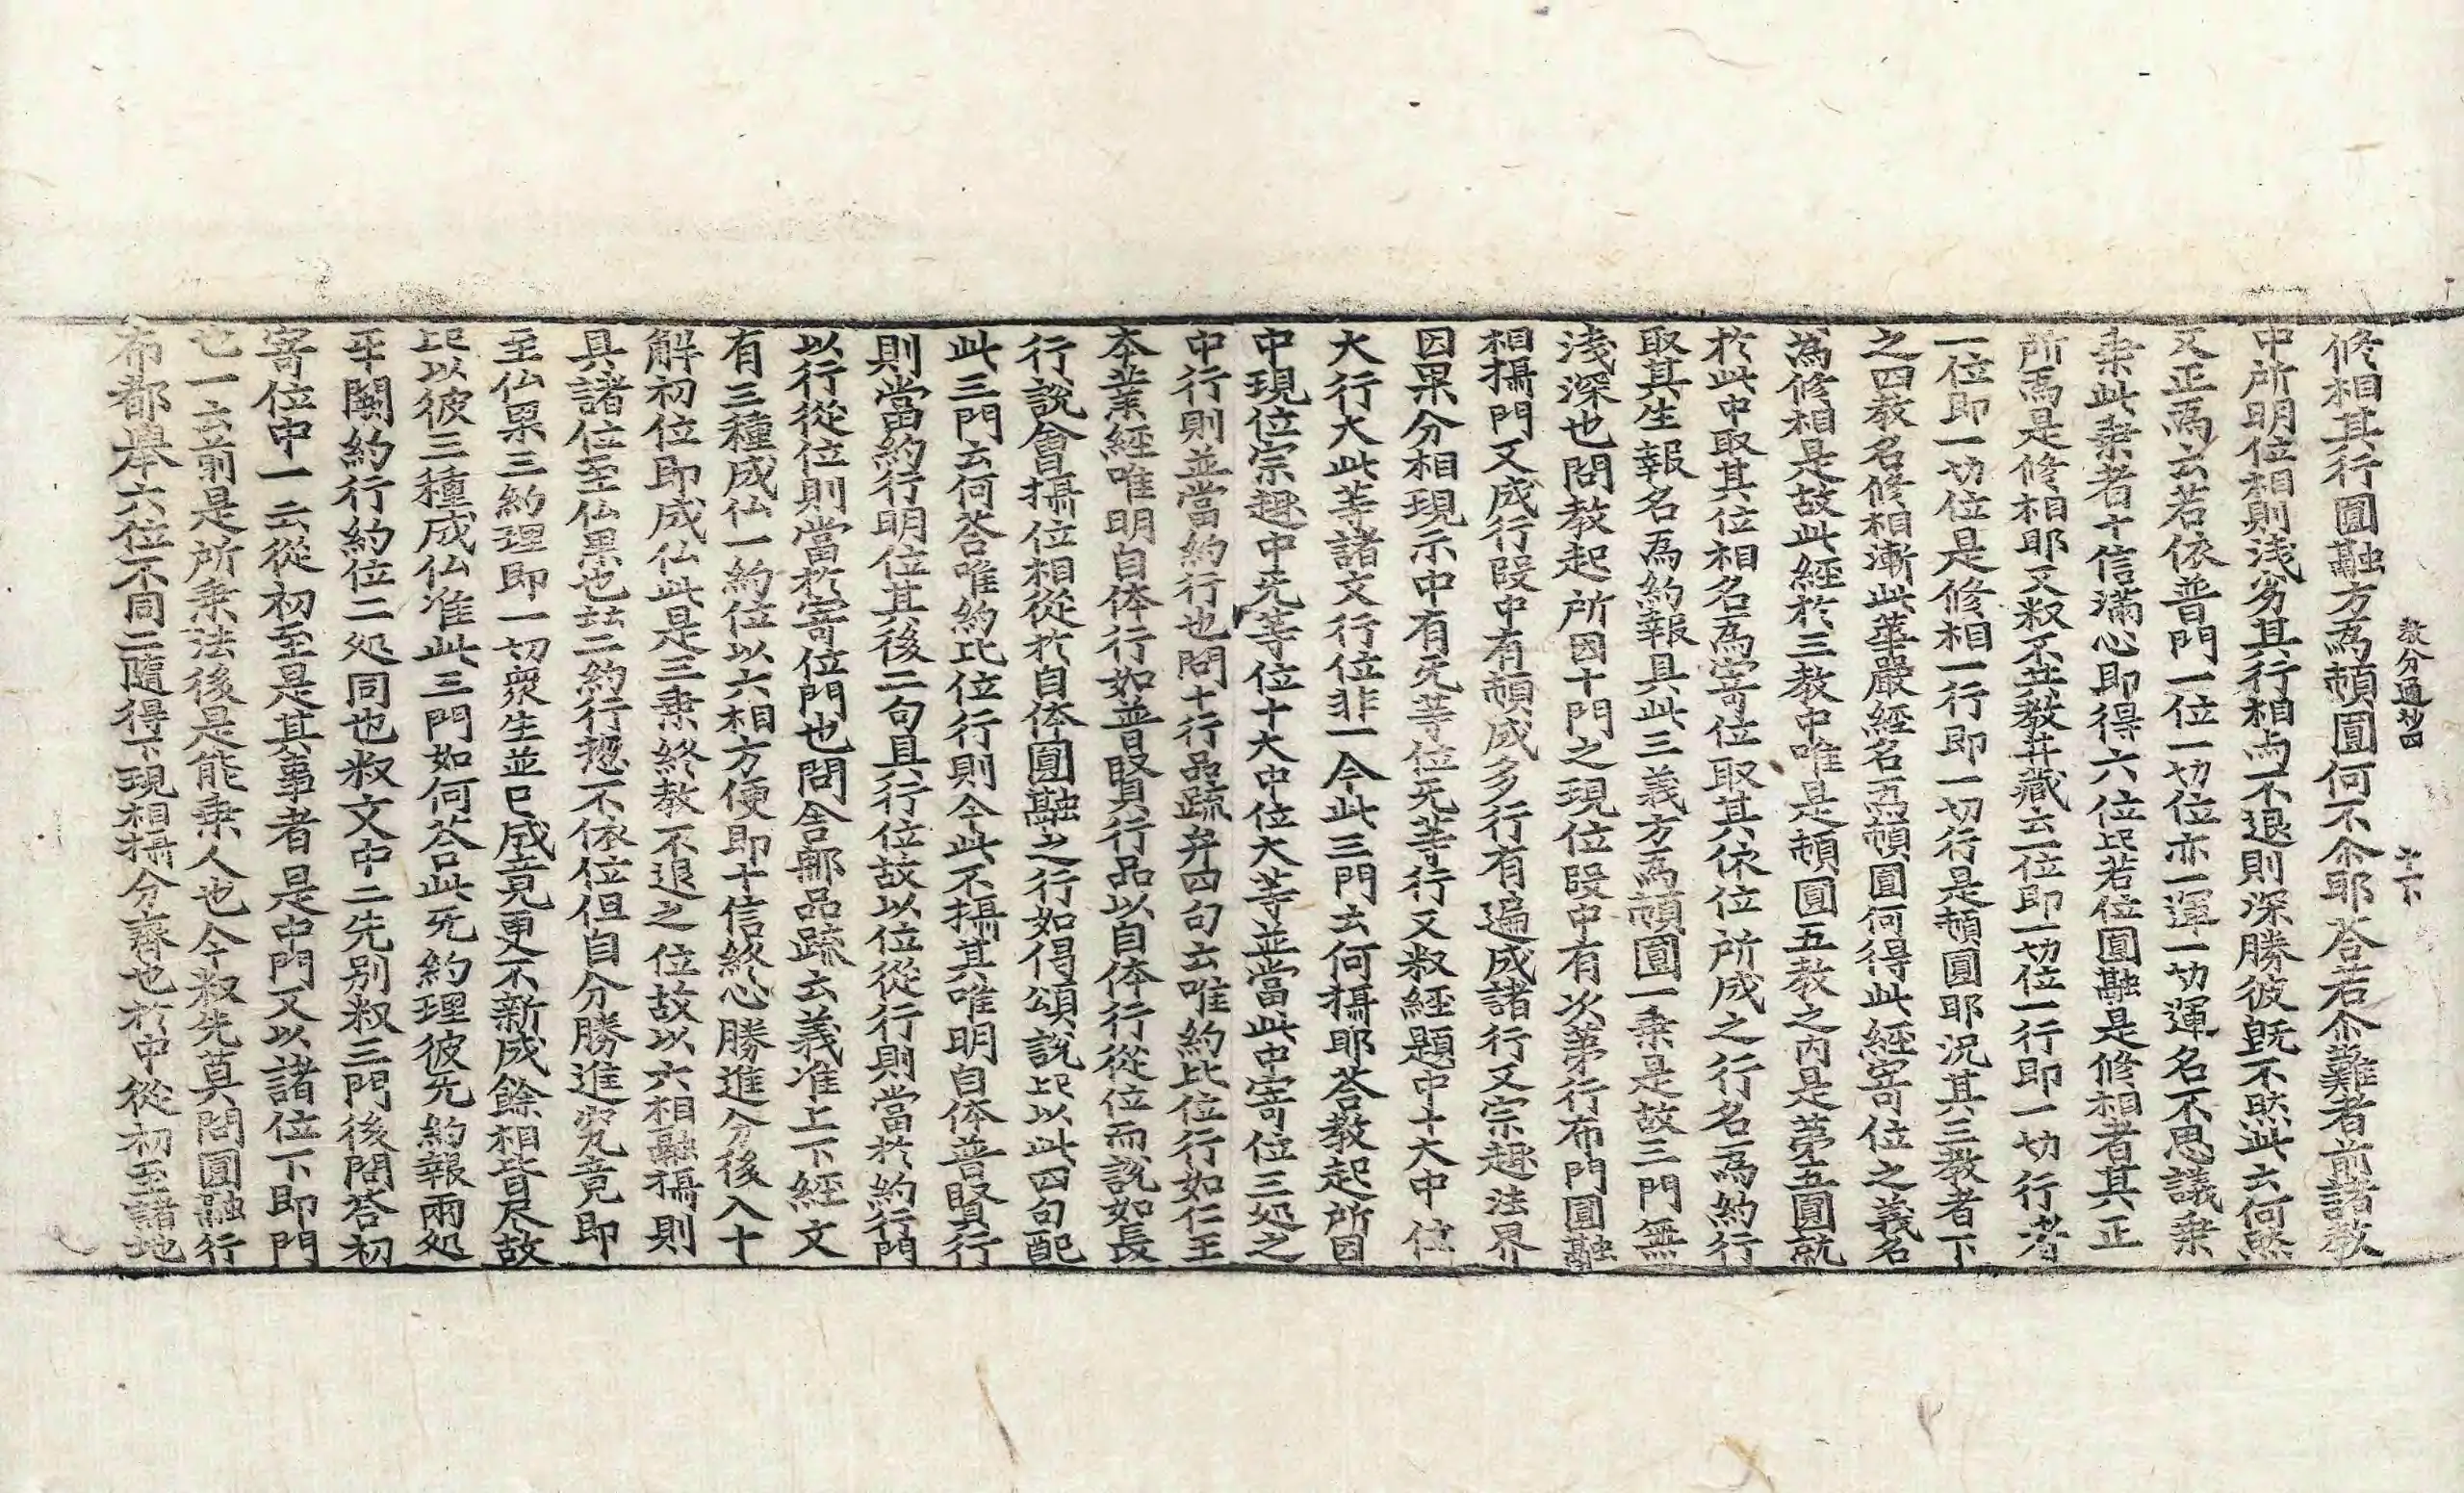 教分通抄四 十二下
修相其行圓融方為頓圓何不尒耶荅若尒難者前諸教
中所明位相則淺劣其行相尚不退則深勝彼旣不然此云何然
又正爲云若依普門一位一切位亦一運一切運名不思議乗
乗此乗者十信滿心即得六位此若位圓融是修相者其正
所爲是修相耶又叔不在教幷藏云一位即一切位一行即一切行者
一位即一切位是修相一行即一切行是頓圓耶况其三教者下
之四教名修相漸此華嚴經名爲頓圓何得此經寄位之義名
為修相是故此經於三教中唯是頓圓五教之內是第五圓就
於此中取其位相名為寄位取其依位所成之行名為約行
取其生報名爲約報具此三義方爲頓圓一乗是故三門無
淺深也問教起所因十門之現位段中有以第行布門圓融
相攝門又成行段中有頓成多行有遍成諸行又宗趣法界
因果分相現示中有无等位无等行又叔經題中十大中位
大行大此等諸文行位非一今此三門云何攝耶荅教起所因
中現位宗趣中无等位十大中位大等並當此中寄位三処之
中行則並當約行也問十行品䟽弁四句云唯約比位行如仁王
本業經唯明自体行如普賢行品以自体行從位而說如長
行說會攝位相從於自体圓融之行如偈頌說此以此四句配
此三門云何荅唯約比位行則今此不攝其唯明自体普賢行
則當約行明位其後二句且行位故以位從行則當於約行門
以行從位則當於寄位門也問舍那品䟽云義准上下經文
有三種成仏一約位以六相方便即十信終心勝進分後入十
解初位即成仏此是三乗終教不退之位故以六相融攝則
具諸位至仏果也 二約行揔不依位但自分勝進究竟即
至仏果三約理即一切衆生並已成竟更不新成餘相皆尽故
此以彼三種成仏准此三門如何荅此无約理彼无約報兩処
平闕約行約位二処同也叔文中二先别叔三門後問荅初
寄位中一云從初至是其事者是中門又以諸位下即門
也一云前是所乗法後是能乗人也今叔先莫問圓融行
布都舉六位不同二隨得下現相攝分齊也於中從初至諸地